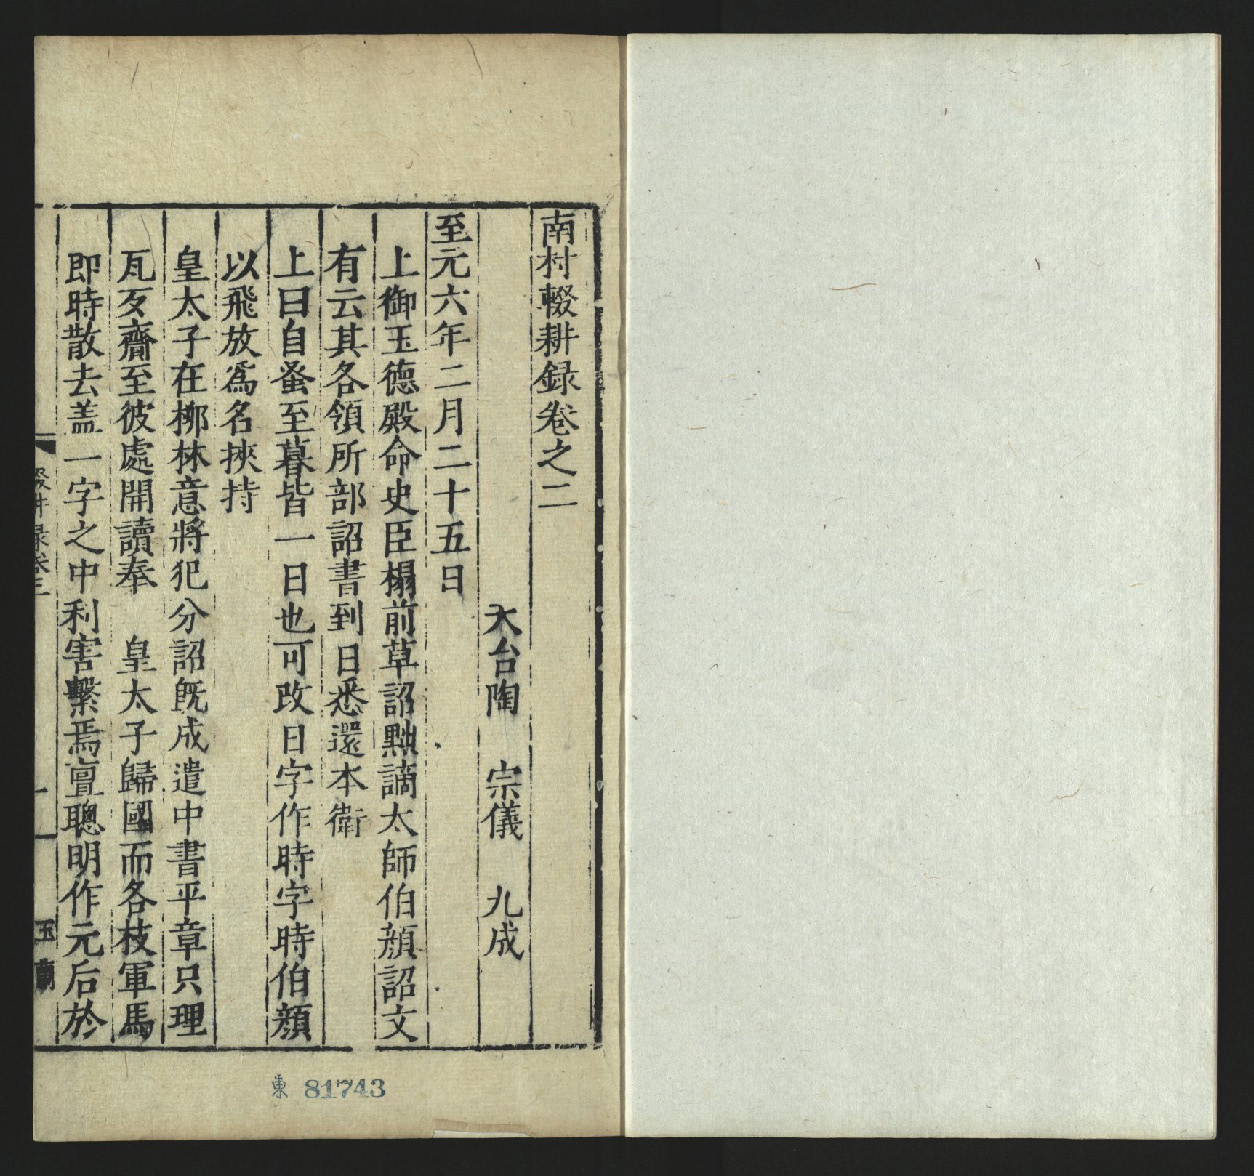 南村輟耕録卷之二
天台陶　宗儀　九成
至元六年二月二十五日
上御玉德殿命史臣榻前草詔黜謫太師伯顔詔文
有云其各領所部詔書到日悉還本衛
上曰自蚤至暮皆一日也可改日字作時字時伯顔
以飛放爲名挾持
皇太子在栁林意將犯分詔旣成遣中書平章只理
瓦歹齎至彼處開讀奉　皇太子歸國而各枝軍馬
即時散去盖一字之中利害繫焉亶聰明作元后於
東 81743